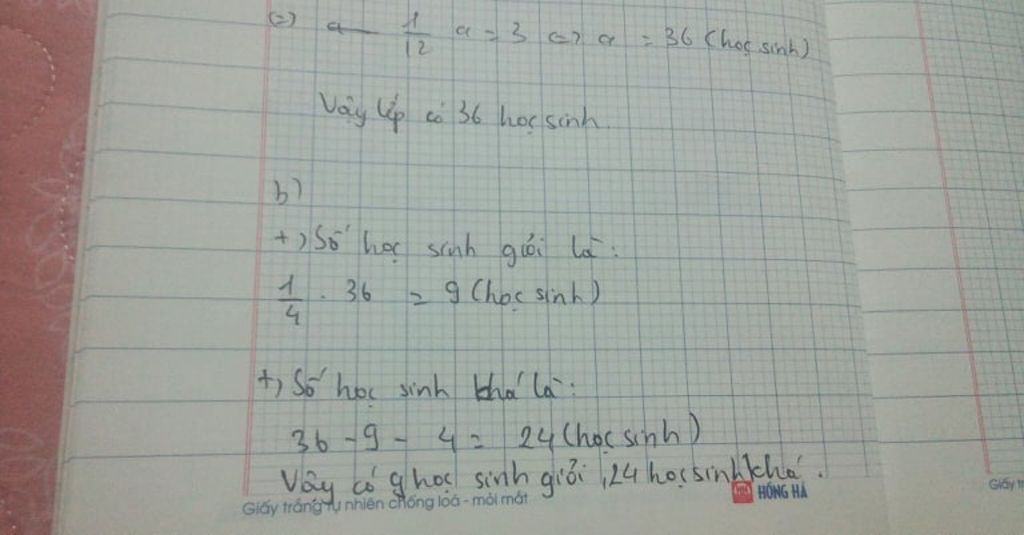 (=) a - 1/12 a = 3 <=> a = 36 (học sinh)
Vậy lớp có 36 học sinh.
b)
+) Số học sinh giỏi là:
1/4 . 36 = 9 (học sinh)
+) Số học sinh khá là:
36 - 9 - 4 = 24 (học sinh)
Vậy có 9 học sinh giỏi, 24 học sinh khá.
Giấy trắng tự nhiên chống loá - mỏi mắt HỒNG HÀ
Giấy tr